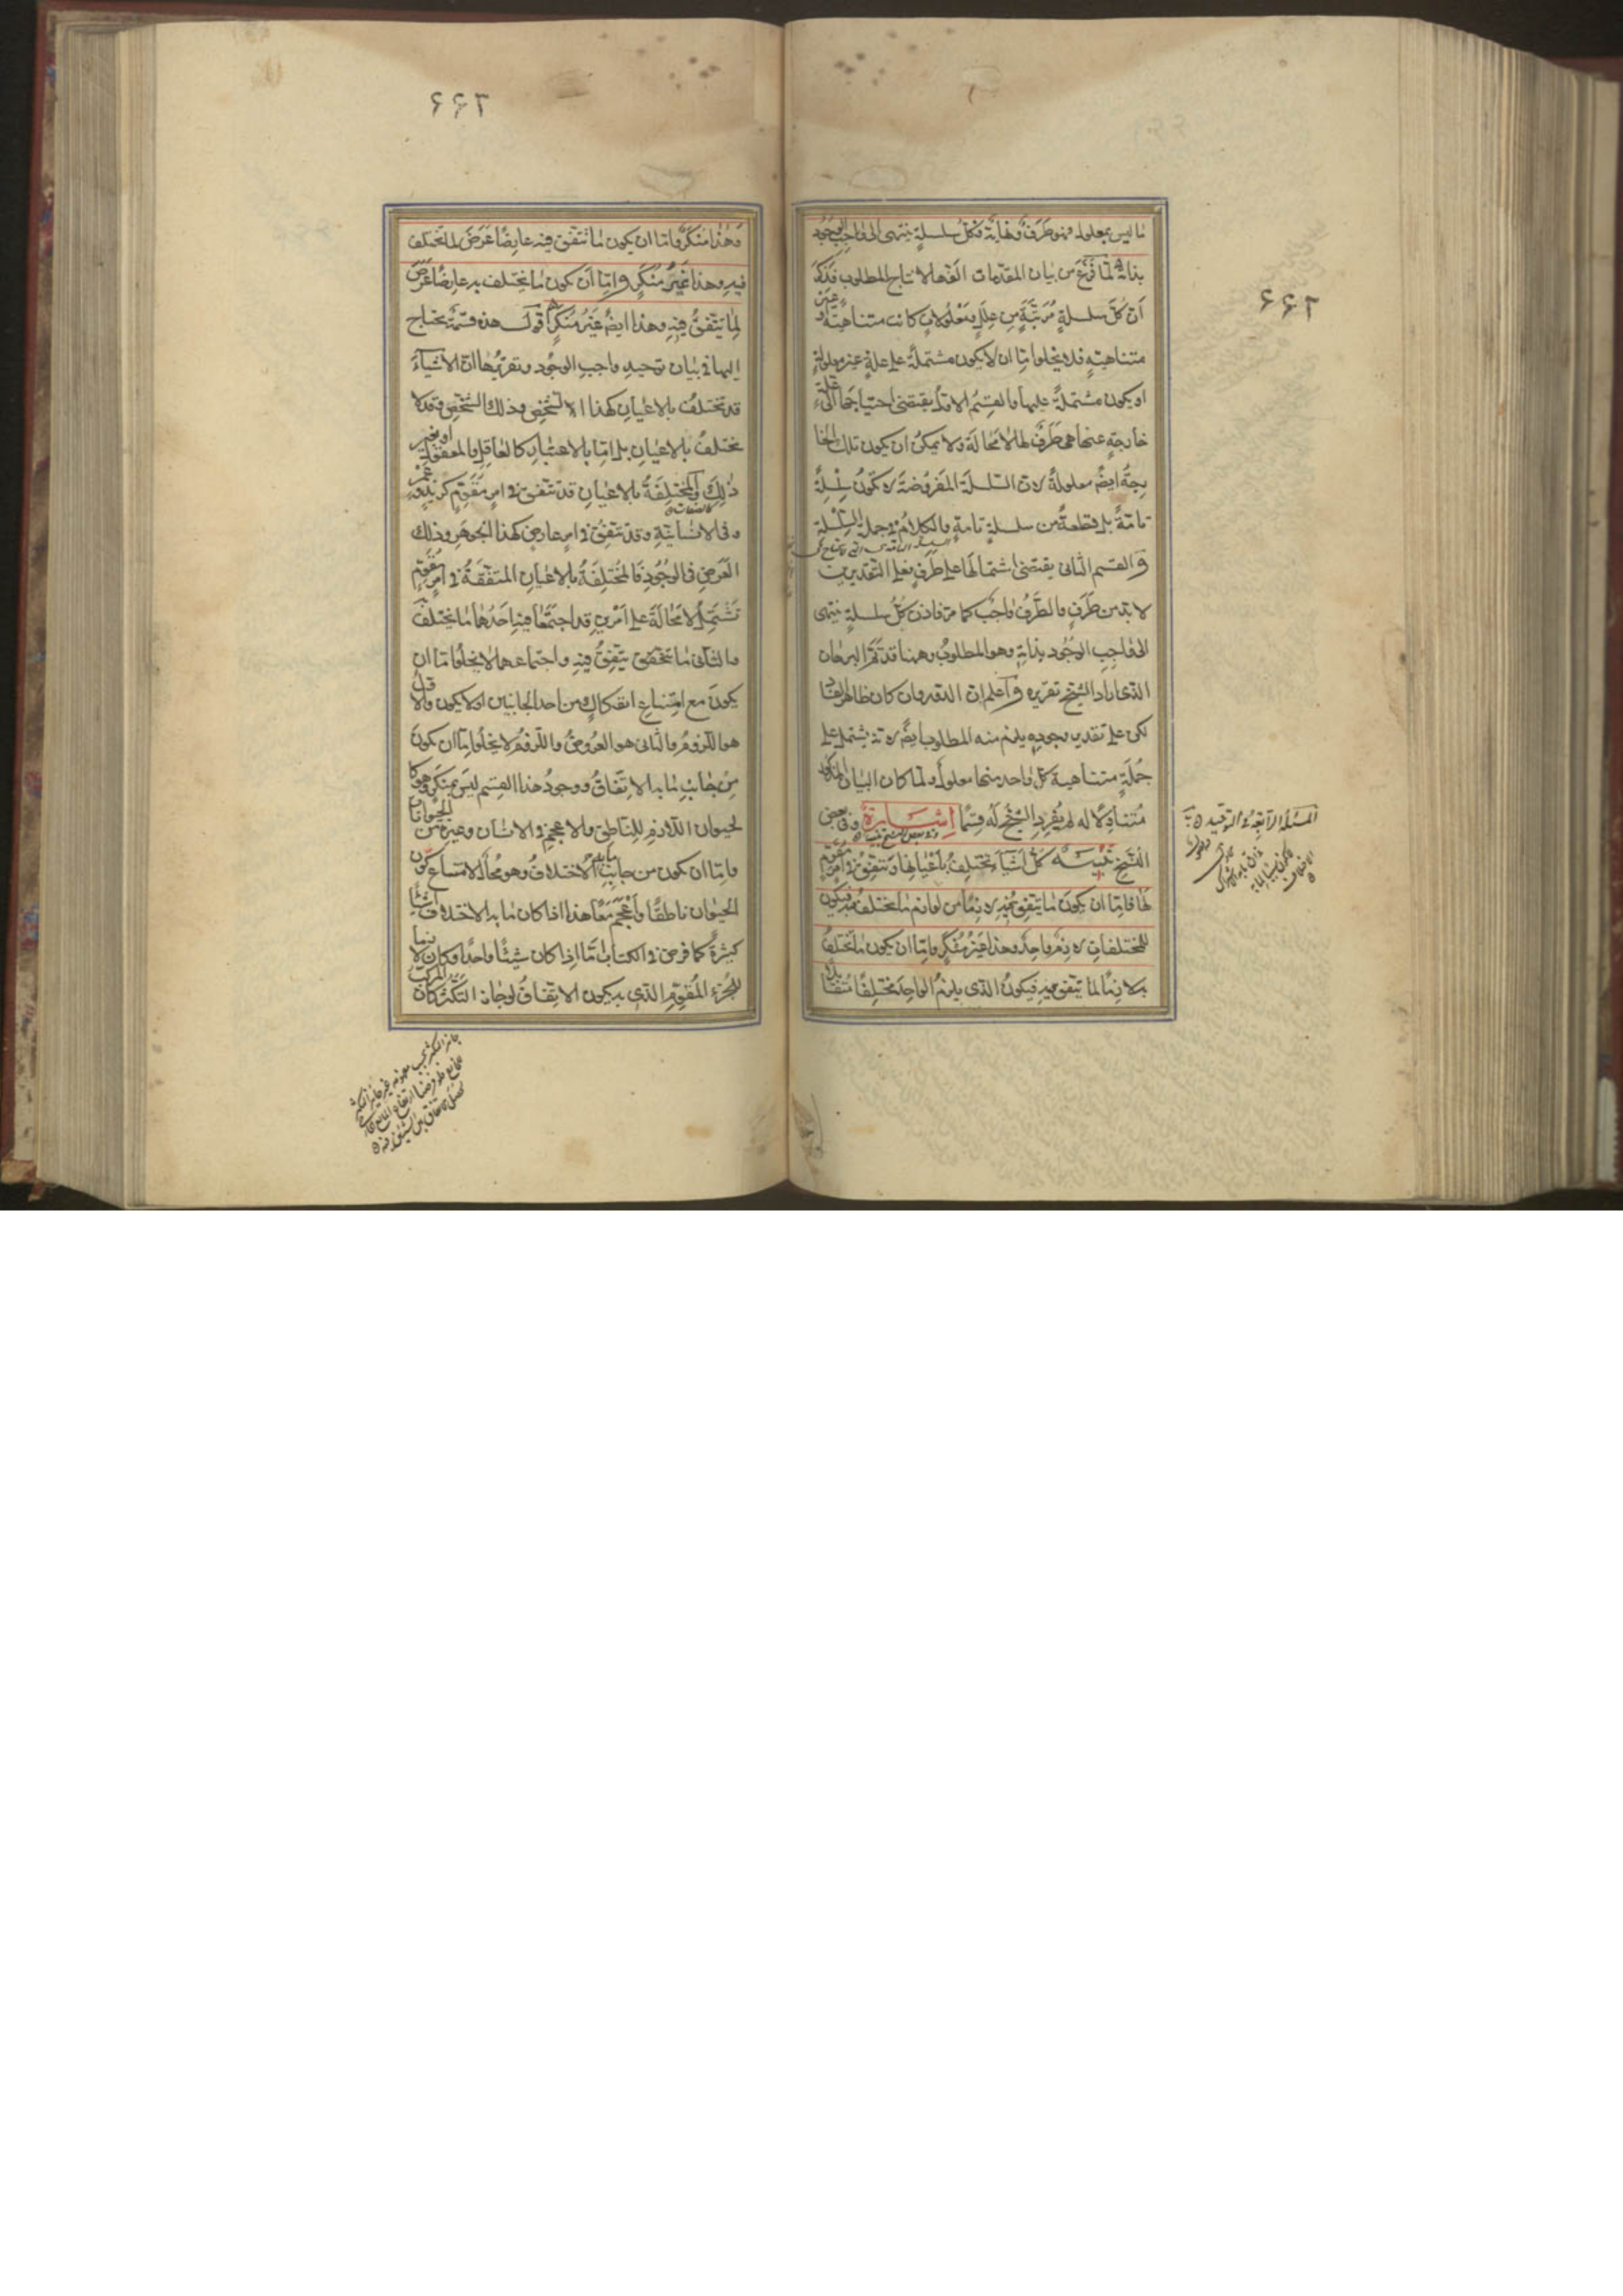 ٦٦٢
ما ليس بمعلول فهو طرف ونهاية فكل سلسلة ينتهى الى واجب الوجود
بذاته لما فرغ من بيان المقدمات الفها لانتاج المطلوب فذكر
ان كل سلسلة مرتبة من علل ومعلولات كانت متناهية او غير
متناهية فلا يخلوا اما ان لا يكون مشتملة على علة غير معلولة
او يكون مشتملة عليها والقسم الاول يقتضى احتياجها الى علة
خارجة عنها هى طرف لها لا محالة ولا يمكن ان يكون تلك الخا
رجة ايضً معلولة لان السلسلة المفروضة لا تكون سلسلة
تامة بل قطعة من سلسلة تامة والكلام فى جملة السلسلة
والقسم الثانى يقتضى اشتمالها على طرف فعلى التقديرين
لا بد من طرف والطرف واجب كما مر فاذن كل سلسلة ينتهى
الى واجب الوجود بذاته وهو المطلوب وههنا قد تم البرهان
الذى اراد الشيخ تقريره واعلم ان الدور وان كان ظاهر الفساد
لكن على تقدير وجوده يلزم منه المطلوب ايضً لانه يشتمل على
جملة متناهية كل واحد منها معلول ولما كان البيان المذكور
متناولا له لم يفرد الشيخ له قسما اشارة وفى بعض
النسخ تنبيه كل اشياء تختلف باعيانها وتتفق فى امر مقوم
لها فاما ان يكون ما يتفق فيه لازما من لوازم ما يختلف به فيكون
للمختلفات لازم واحد وهذا غير منكر واما ان يكون ما تختلف
به لازما لما يتفق فيه فيكون الذى يلزم الواحد مختلفا متقابلا
المسئلة الرابعة فى التوحيد
٦٦٣
وهذا منكر واما ان يكون ما تتفق فيه عارضا عرض لما تختلف
فيه وهذا غير منكر واما ان يكون ما يختلف به عارضا عرض
لما يتفق فيه وهذا ايضً غير منكر اقول هذه قسمة يحتاج
اليها فى بيان توحيد واجب الوجود وتقريرها ان الاشياء
قد تختلف بالاعيان كهذا الشخص وذلك الشخص وقد لا
يختلف بالاعيان بل اما بالاعتبار كالعاقل والمعقول او بغير
ذلك والمختلفة بالاعيان قد تتفق فى امر مقوم كزيد وعمرو
فى الانسانية وقد تتفق فى امر عارض كهذا الجوهر وذلك
العرض فى الوجود فالمختلفة بالاعيان المتفقة فى امر مقوم
تشتمل لا محالة على امرين قد اجتمعا فيه احدهما ما يختلف به
والثانى ما يتفق فيه واجتماعهما لا يخلوا اما ان
يكون مع امتناع انفكاك من احد الجانبين او لا يكون والاول
هو اللزوم والثانى هو العروض واللزوم لا يخلوا اما ان يكون
من جانب ما به الاتفاق ووجود هذا القسم ليس بمنكر وهو كا
لحيوان اللازم للناطق والاعجم فى الانسان وغيره من الحيوانات
واما ان يكون من جانب ما به الاختلاف وهو محال لامتناع كون
الحيوان ناطقا واعجم معا هذا اذا كان ما به الاختلاف اشياء
كثيرة كما فرض فى الكتاب اما اذا كان شيئا واحدا وكان لازما
للجزء المقوم الذى به يكون الاتفاق لو جاز التكثر كان المركب